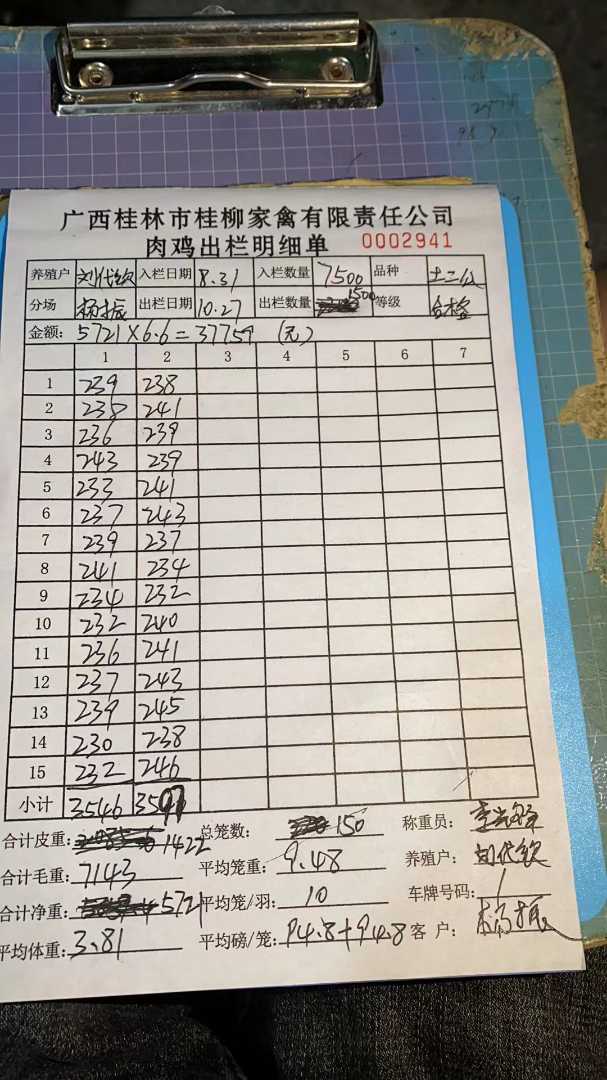 广西桂林市桂柳家禽有限责任公司
肉鸡出栏明细单 0002941
养殖户 刘代钦 入栏日期 8.31 入栏数量 7500 品种 土二公
分场 杨振 出栏日期 10.27 出栏数量 1500 等级 合格
金额: 5721×6.6=37759 (元)
1 2 3 4 5 6 7
1 239 238
2 238 241
3 236 239
4 243 239
5 233 241
6 237 243
7 239 237
8 241 234
9 234 232
10 232 240
11 236 241
12 237 243
13 239 245
14 230 238
15 232 246
小计 3546 3597
合计皮重: 1422 总笼数: 150 称重员:
合计毛重: 7143 平均笼重: 9.48 养殖户: 刘代钦
合计净重: 5721 平均笼/羽: 10 车牌号码: 1
平均体重: 3.81 平均磅/笼: 94.8+94.8 客户: